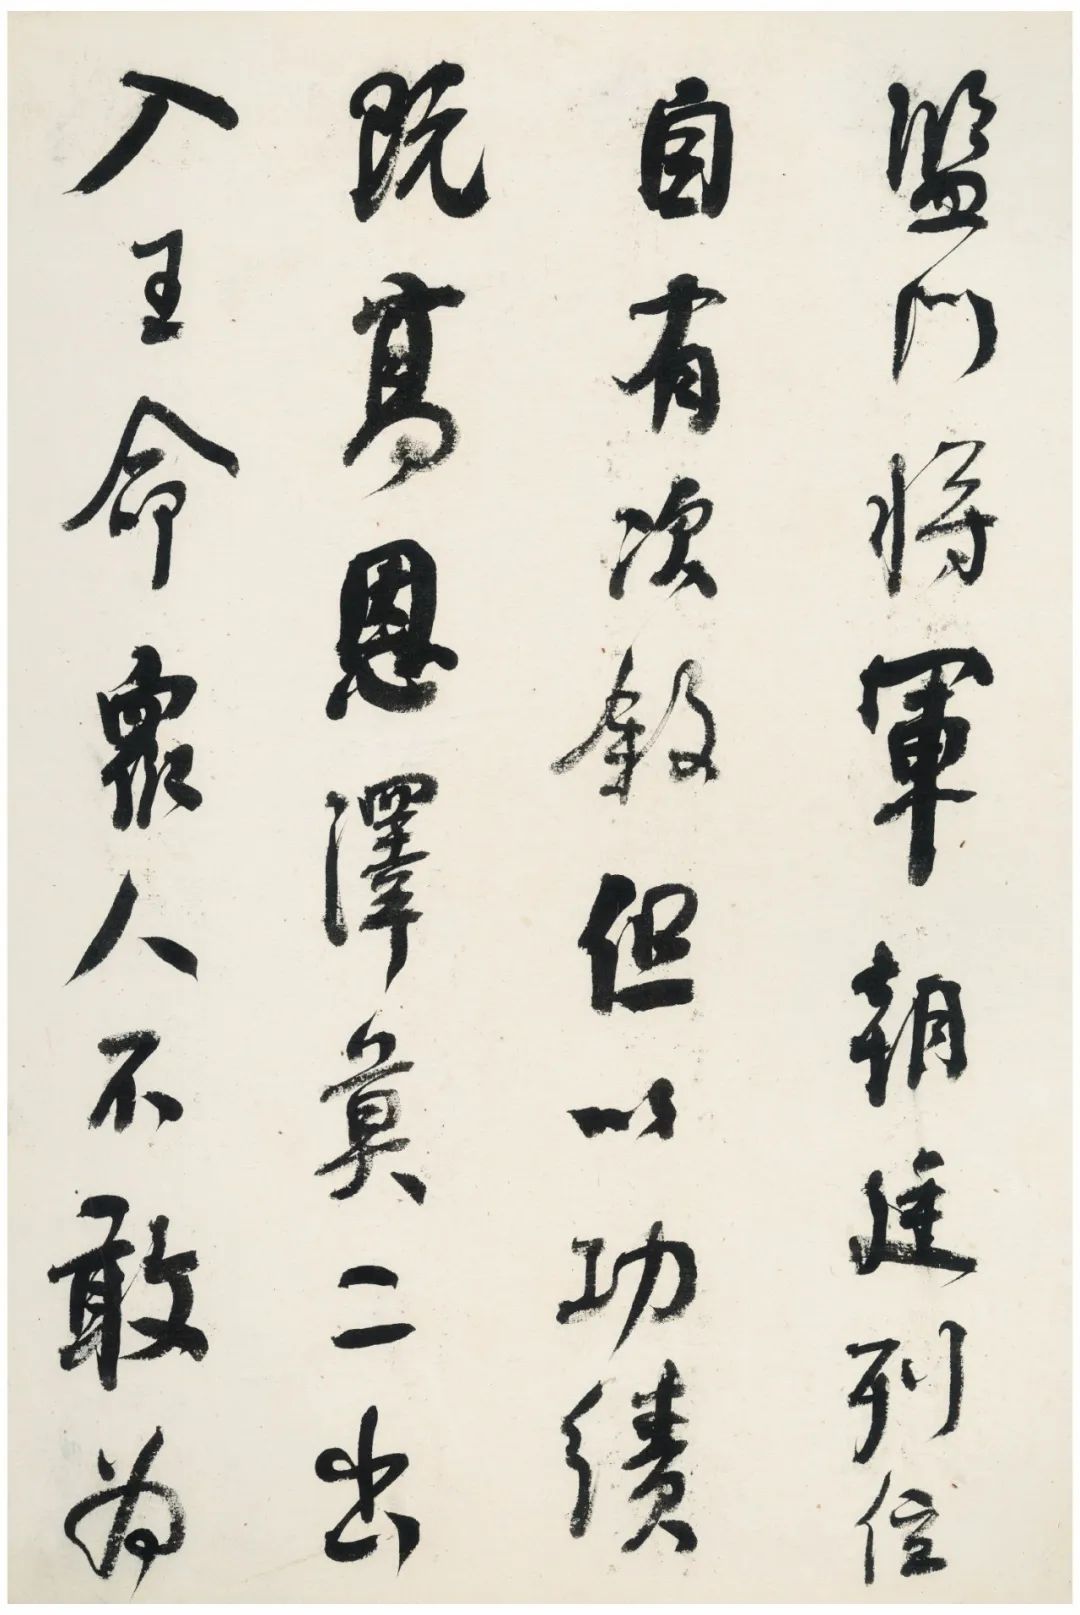 監門将軍朝廷列位
自有次敘但以功績
既高恩澤莫二出
入王命眾人不敢為